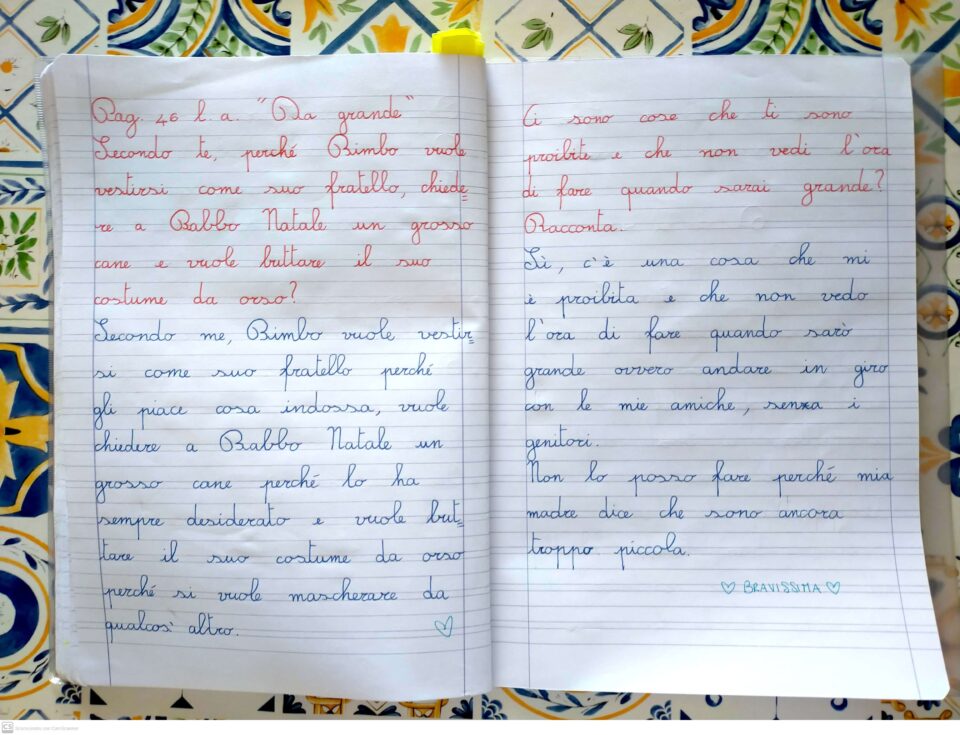 Pag. 46 l. a. "Da grande"
Secondo te, perché Bimbo vuole
vestirsi come suo fratello, chiede=
re a Babbo Natale un grosso
cane e vuole buttare il suo
costume da orso?
Secondo me, Bimbo vuole vestir=
si come suo fratello perché
gli piace cosa indossa, vuole
chiedere a Babbo Natale un
grosso cane perché lo ha
sempre desiderato e vuole but=
tare il suo costume da orso
perché si vuole mascherare da
qualcos' altro.
Ci sono cose che ti sono
proibite e che non vedi l'ora
di fare quando sarai grande?
Racconta.
Sì, c'è una cosa che mi
è proibita e che non vedo
l'ora di fare quando sarò
grande ovvero andare in giro
con le mie amiche, senza i
genitori.
Non lo posso fare perché mia
madre dice che sono ancora
troppo piccola.
♡ BRAVISSIMA ♡
CS